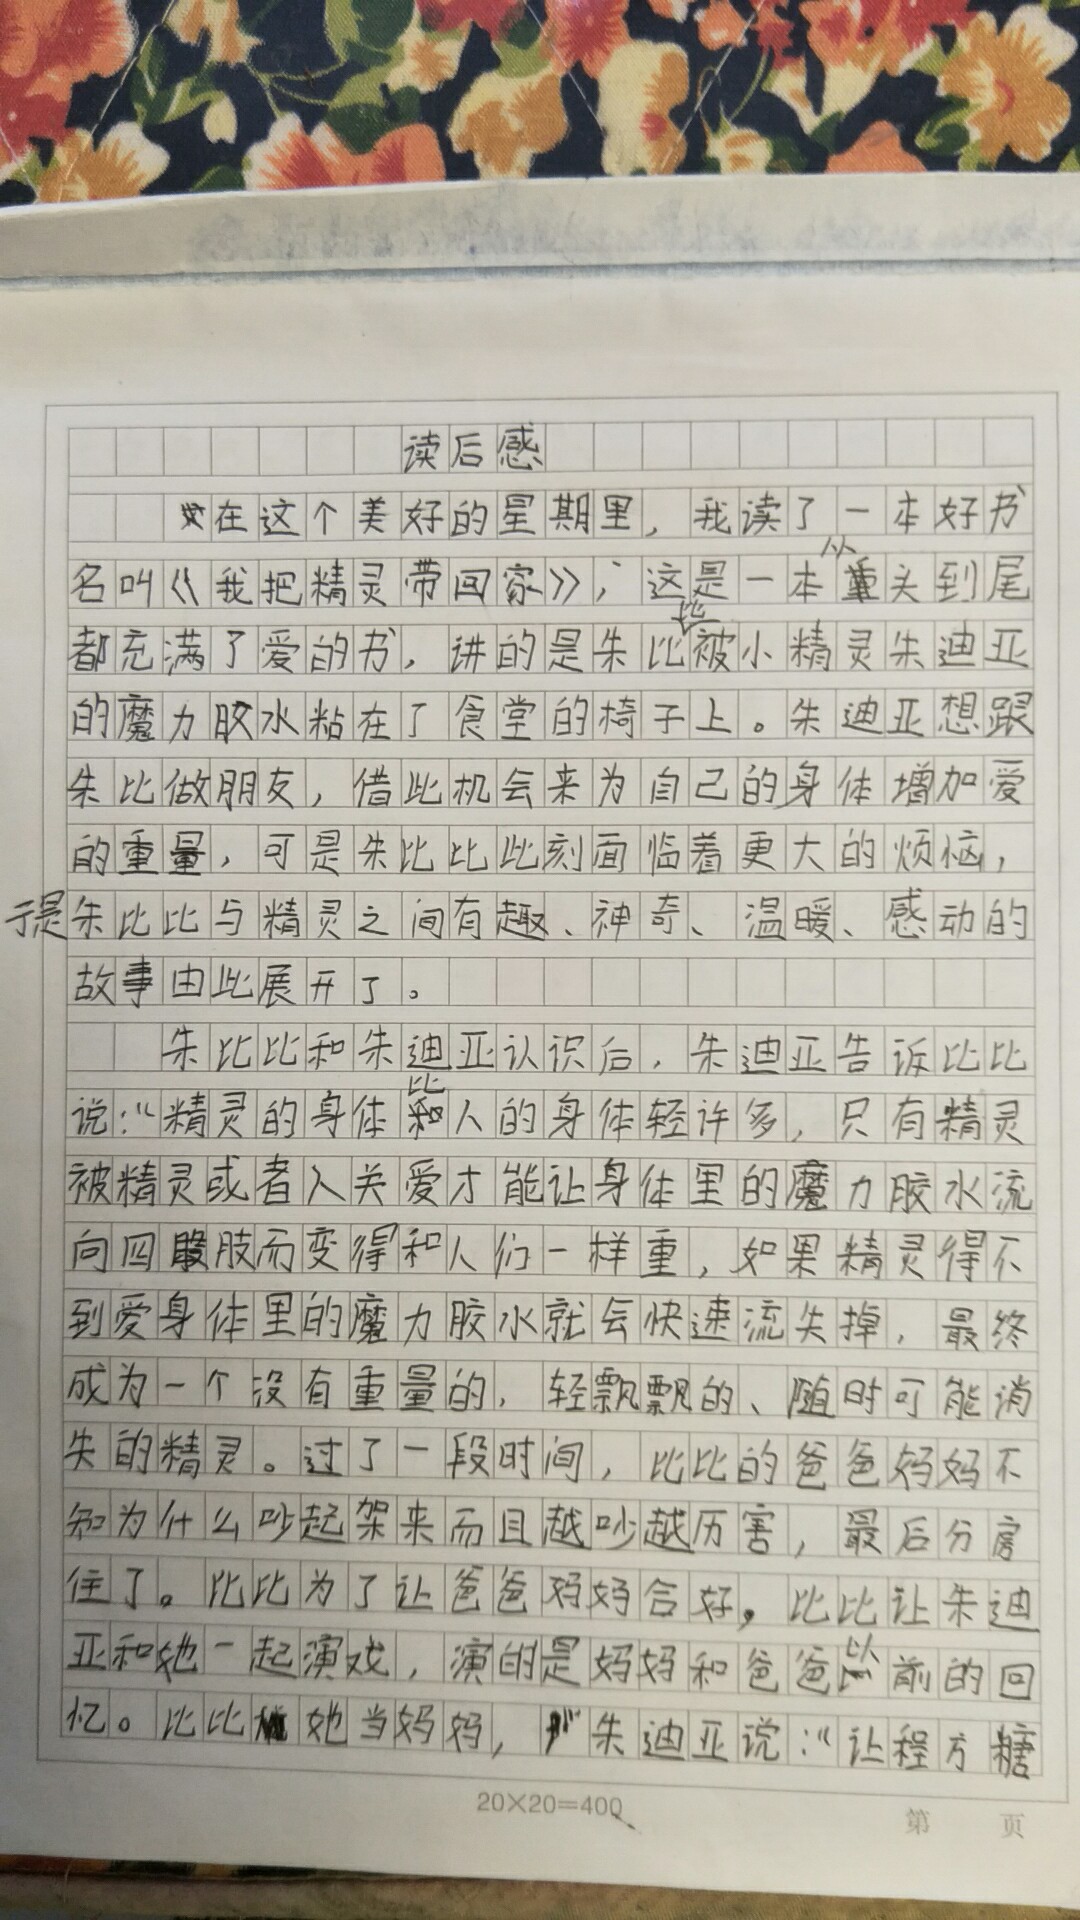 读后感
在这个美好的星期里，我读了一本好书
名叫《我把精灵带回家》，这是一本从头到尾
都充满了爱的书，讲的是朱比比被小精灵朱迪亚
的魔力胶水粘在了食堂的椅子上。朱迪亚想跟
朱比做朋友，借此机会来为自己的身体增加爱
的重量，可是朱比比此刻面临着更大的烦恼，
于是朱比比与精灵之间有趣、神奇、温暖、感动的
故事由此展开了。
朱比比和朱迪亚认识后，朱迪亚告诉比比
说：“精灵的身体比人的身体轻许多，只有精灵
被精灵或者人关爱才能让身体里的魔力胶水流
向四肢而变得和人们一样重，如果精灵得不
到爱身体里的魔力胶水就会快速流失掉，最终
成为一个没有重量的，轻飘飘的、随时可能消
失的精灵。过了一段时间，比比的爸爸妈妈不
知为什么吵起架来而且越吵越厉害，最后分房
住了。比比为了让爸爸妈妈合好，比比让朱迪
亚和她一起演戏，演的是妈妈和爸爸以前的回
忆。比比她当妈妈，朱迪亚说：“让程方糖
20×20=400
第 页